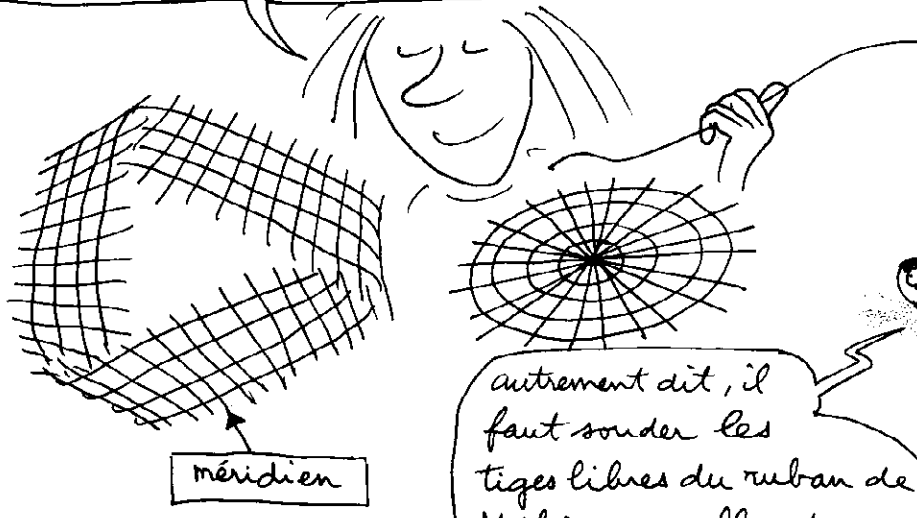 méridien
autrement dit, il
faut souder les
tiges libres du ruban de